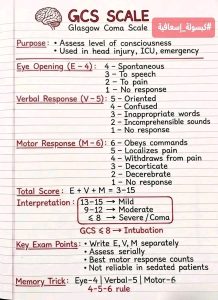 GCS SCALE
Glasgow Coma Scale
#كبسولة_إسعافية
Purpose : • Assess level of consciousness
• Used in head injury, ICU, emergency
Eye Opening (E – 4) : 4 – Spontaneous
3 – To speech
2 – To pain
1 – No response
Verbal Response (V – 5) : 5 – Oriented
4 – Confused
3 – Inappropriate words
2 – Incomprehensible sounds
1 – No response
Motor Response (M – 6) : 6 – Obeys commands
5 – Localizes pain
4 – Withdraws from pain
3 – Decorticate
2 – Decerebrate
1 – No response
Total Score : E + V + M = 3–15
Interpretation : 13–15 → Mild
9–12 → Moderate
≤ 8 → Severe / Coma
GCS ≤ 8 → Intubation
Key Exam Points : • Write E, V, M separately
• Assess serially
• Best motor response counts
• Not reliable in sedated patients
Memory Trick : Eye–4 | Verbal–5 | Motor–6
4-5-6 rule